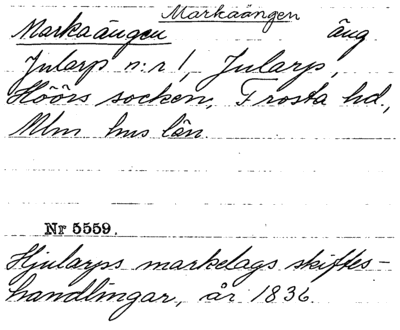 Markaängen
Markaängen äng
Jularp n:r 1, Jularp,
Höörs socken, Frosta hd.,
Mlm hus län.
Nr 5559.
Hjularps markelags skiftes-
handlingar, år 1836.